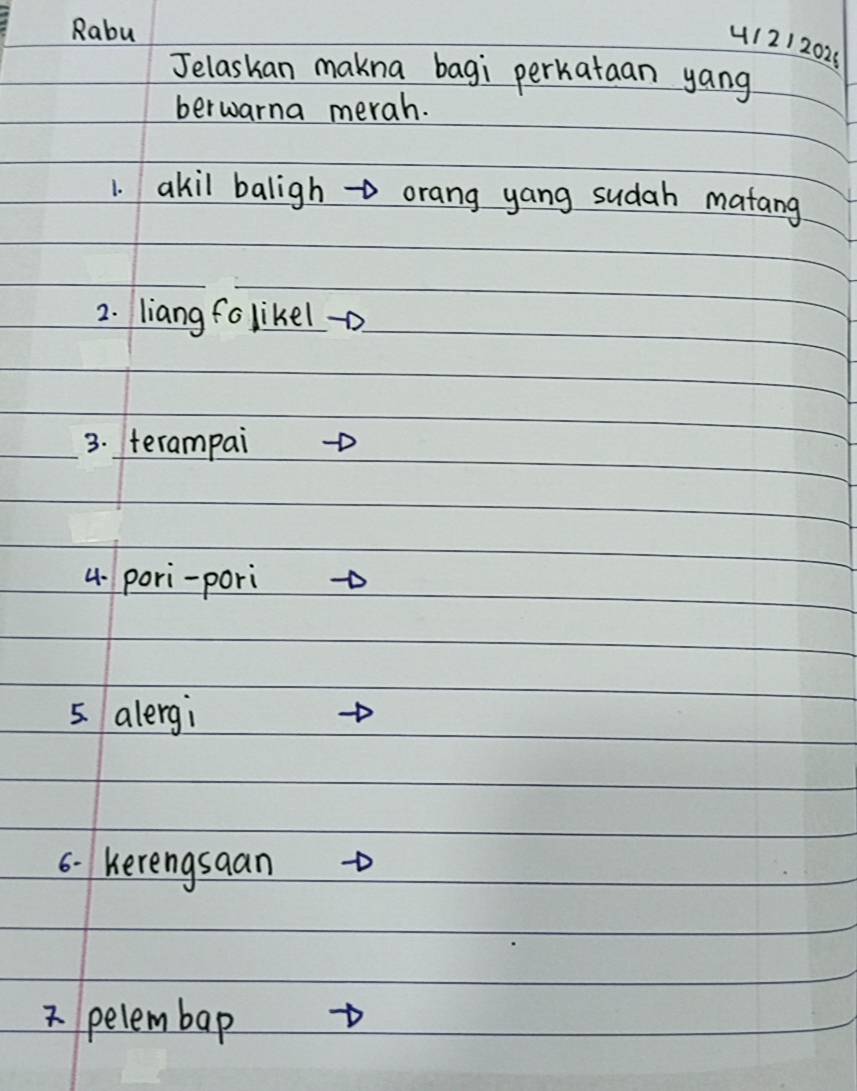 Rabu
4/2/2026
Jelaskan makna bagi perkataan yang
berwarna merah.
1. akil baligh → orang yang sudah matang
2. liang folikel →
3. terampai →
4. pori-pori →
5. alergi →
6. kerengsaan →
7. pelembap →